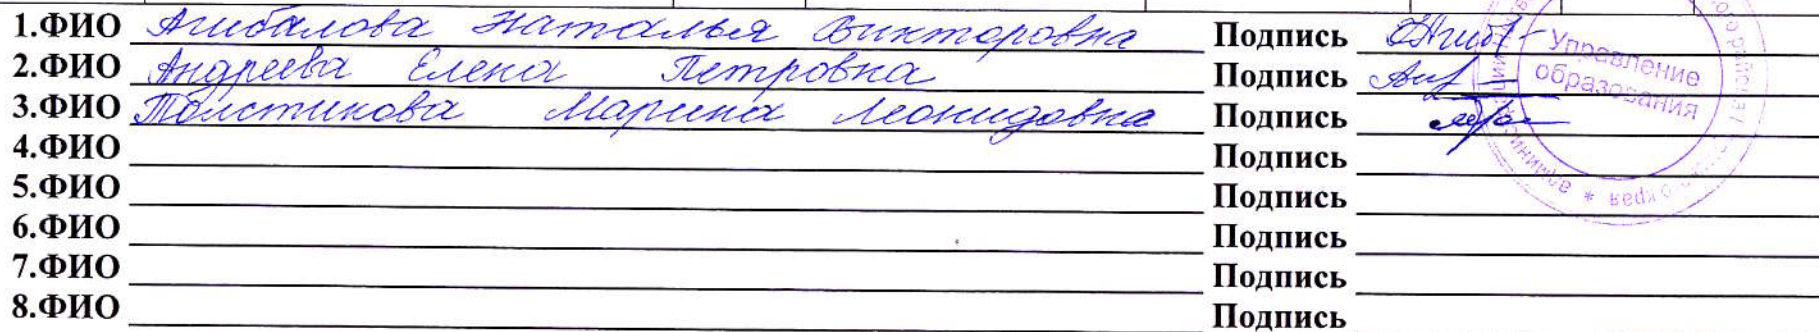 1.ФИО Агибалова Наталья Викторовна Подпись
2.ФИО Андреева Елена Петровна Подпись
3.ФИО Толстикова Марина Леонидовна Подпись
4.ФИО Подпись
5.ФИО Подпись
6.ФИО Подпись
7.ФИО Подпись
8.ФИО Подпись
Управление
образования
края *